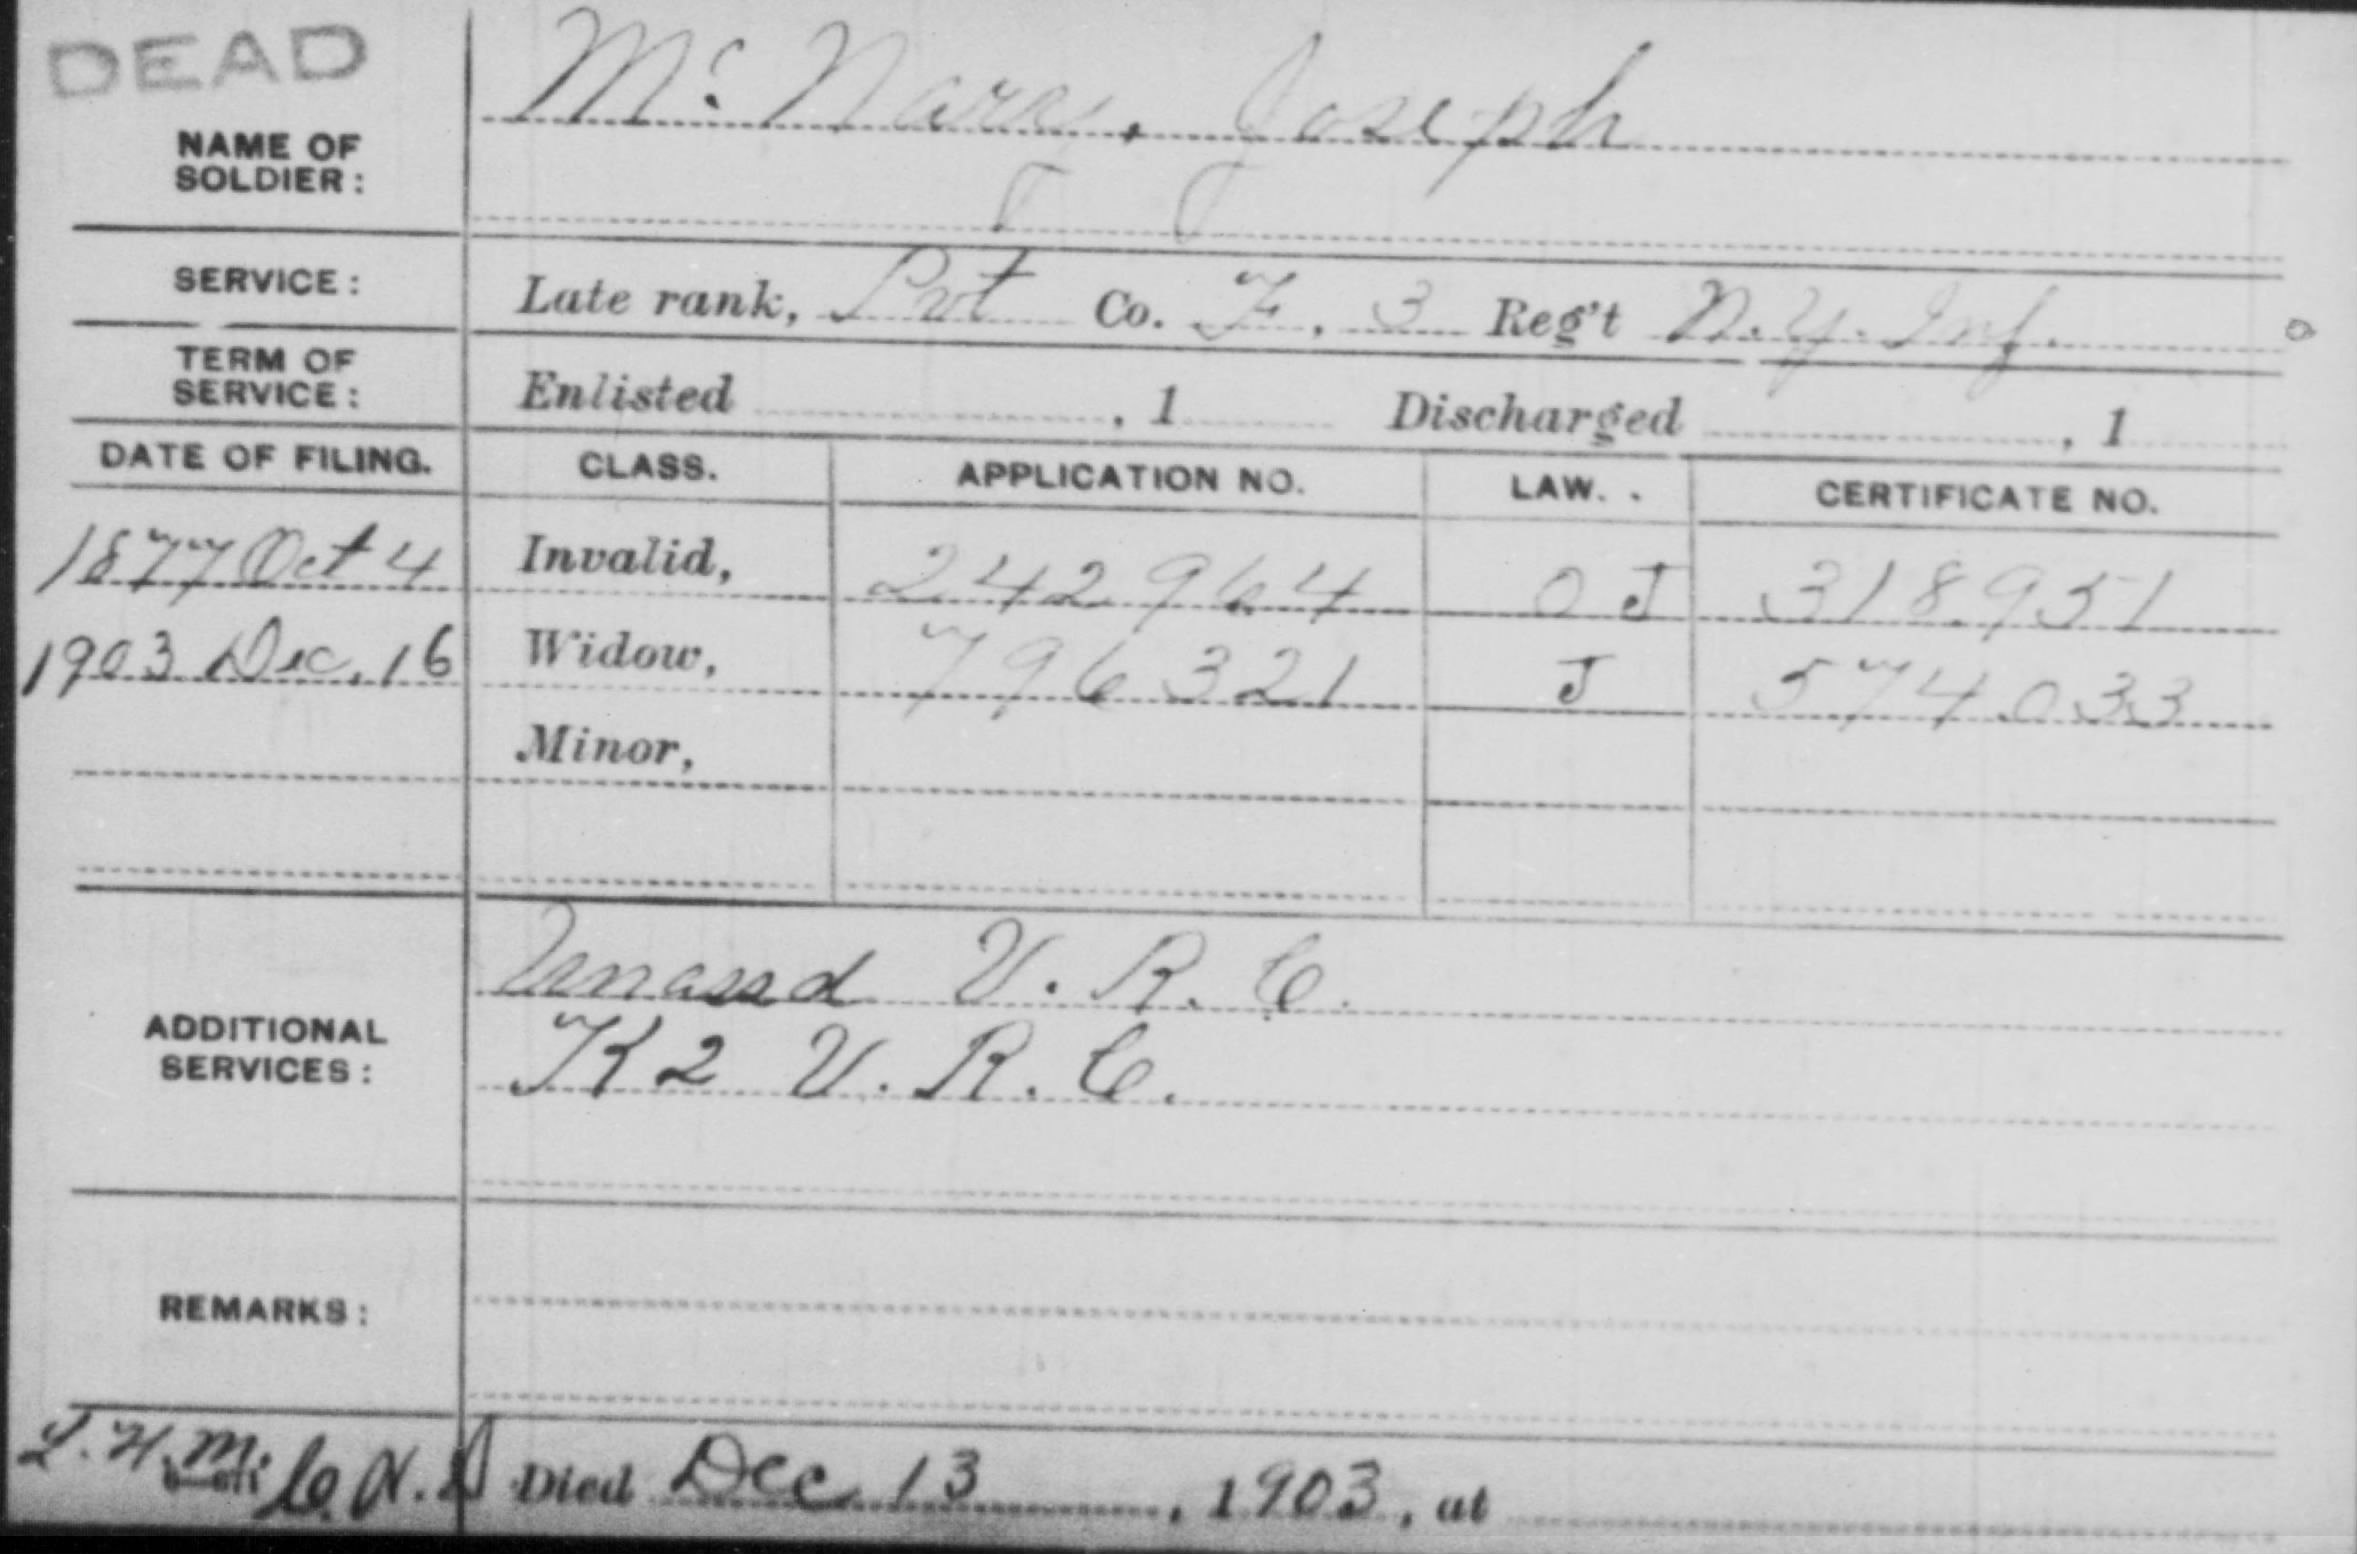 DEAD
NAME OF
SOLDIER:
Mc Nary, Joseph
SERVICE:
Late rank, Pvt Co. F, 3 Reg't N.Y. Inf.
TERM OF
SERVICE:
Enlisted , 1 Discharged , 1
DATE OF FILING. CLASS. APPLICATION NO. LAW. CERTIFICATE NO.
1877 Oct 4 Invalid, 242964 O J 318951
1903 Dec. 16 Widow, 796321 J 574033
Minor,
ADDITIONAL
SERVICES:
Unassd V. R. C.
K 2 V. R. C.
REMARKS:
Died Dec 13, 1903, at